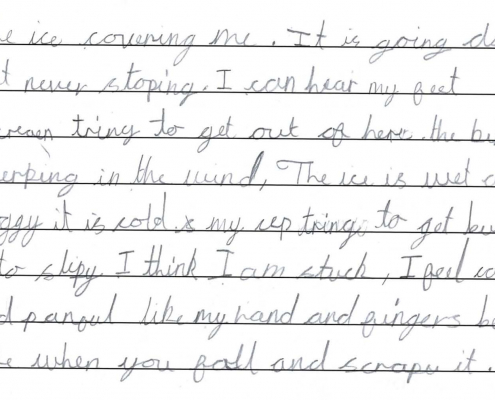 e ice covering me. It is going do
t never stoping. I can hear my feet
tring to get out of here. the bu
erping in the wind, The ice is wet
ggy it is cold my tring to get bu
to slipy I think I am stuck, I feel co
d panful like my hand and fingers b
e when you fall and scrape it.